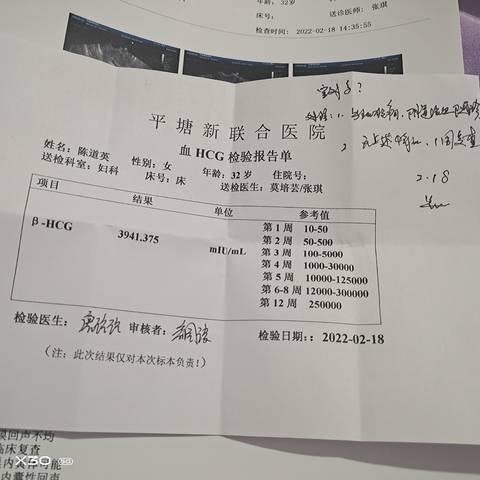 年龄：32岁
床号： 送诊医师：张琪
检查时间：2022-02-18 14:35:55
平塘新联合医院
血HCG检验报告单
姓名：陈道英 性别：女 年龄：32岁 住院号：
送检科室：妇科 床号：床 送检医生：莫培芸/张琪
项目 结果 单位 参考值
β-HCG 3941.375 mIU/mL
第1周 10-50
第2周 50-500
第3周 100-5000
第4周 1000-30000
第5周 10000-125000
第6-8周 12000-300000
第12周 250000
检验医生： 审核者： 检验日期：：2022-02-18
（注：此次结果仅对本次标本负责！）
2.18
膜回声不均
临床复查
X30 5G
内囊性回声